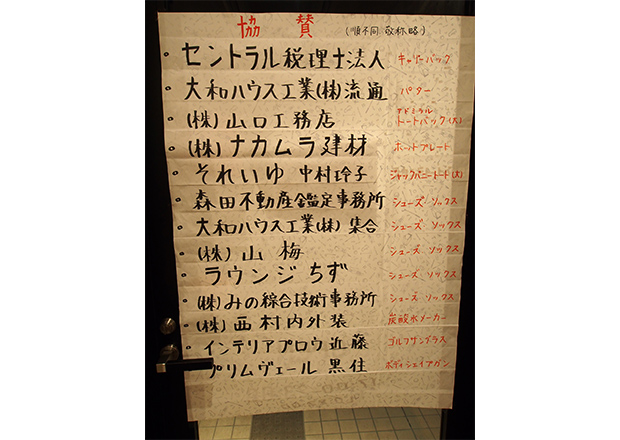 協 賛 (順不同 敬称略)
・ セントラル税理士法人 キャリーバック
・ 大和ハウス工業(株)流通 パター
・ (株)山口工務店 アドミラル トートバック(大)
・ (株)ナカムラ建材 ホットプレート
・ それいゆ 中村玲子 ジャックバニートート(大)
・ 森田不動産鑑定事務所 シューズ ソックス
・ 大和ハウス工業(株)集合 シューズ ソックス
・ (株)山梅 シューズ ソックス
・ ラウンジちず シューズ ソックス
・ (株)みの綜合技術事務所 シューズ ソックス
・ (株)西村内外装 炭酸水メーカー
・ インテリアプロウ近藤 ゴルフサングラス
・ プリムヴェール 黒住 ボディシェイプガン